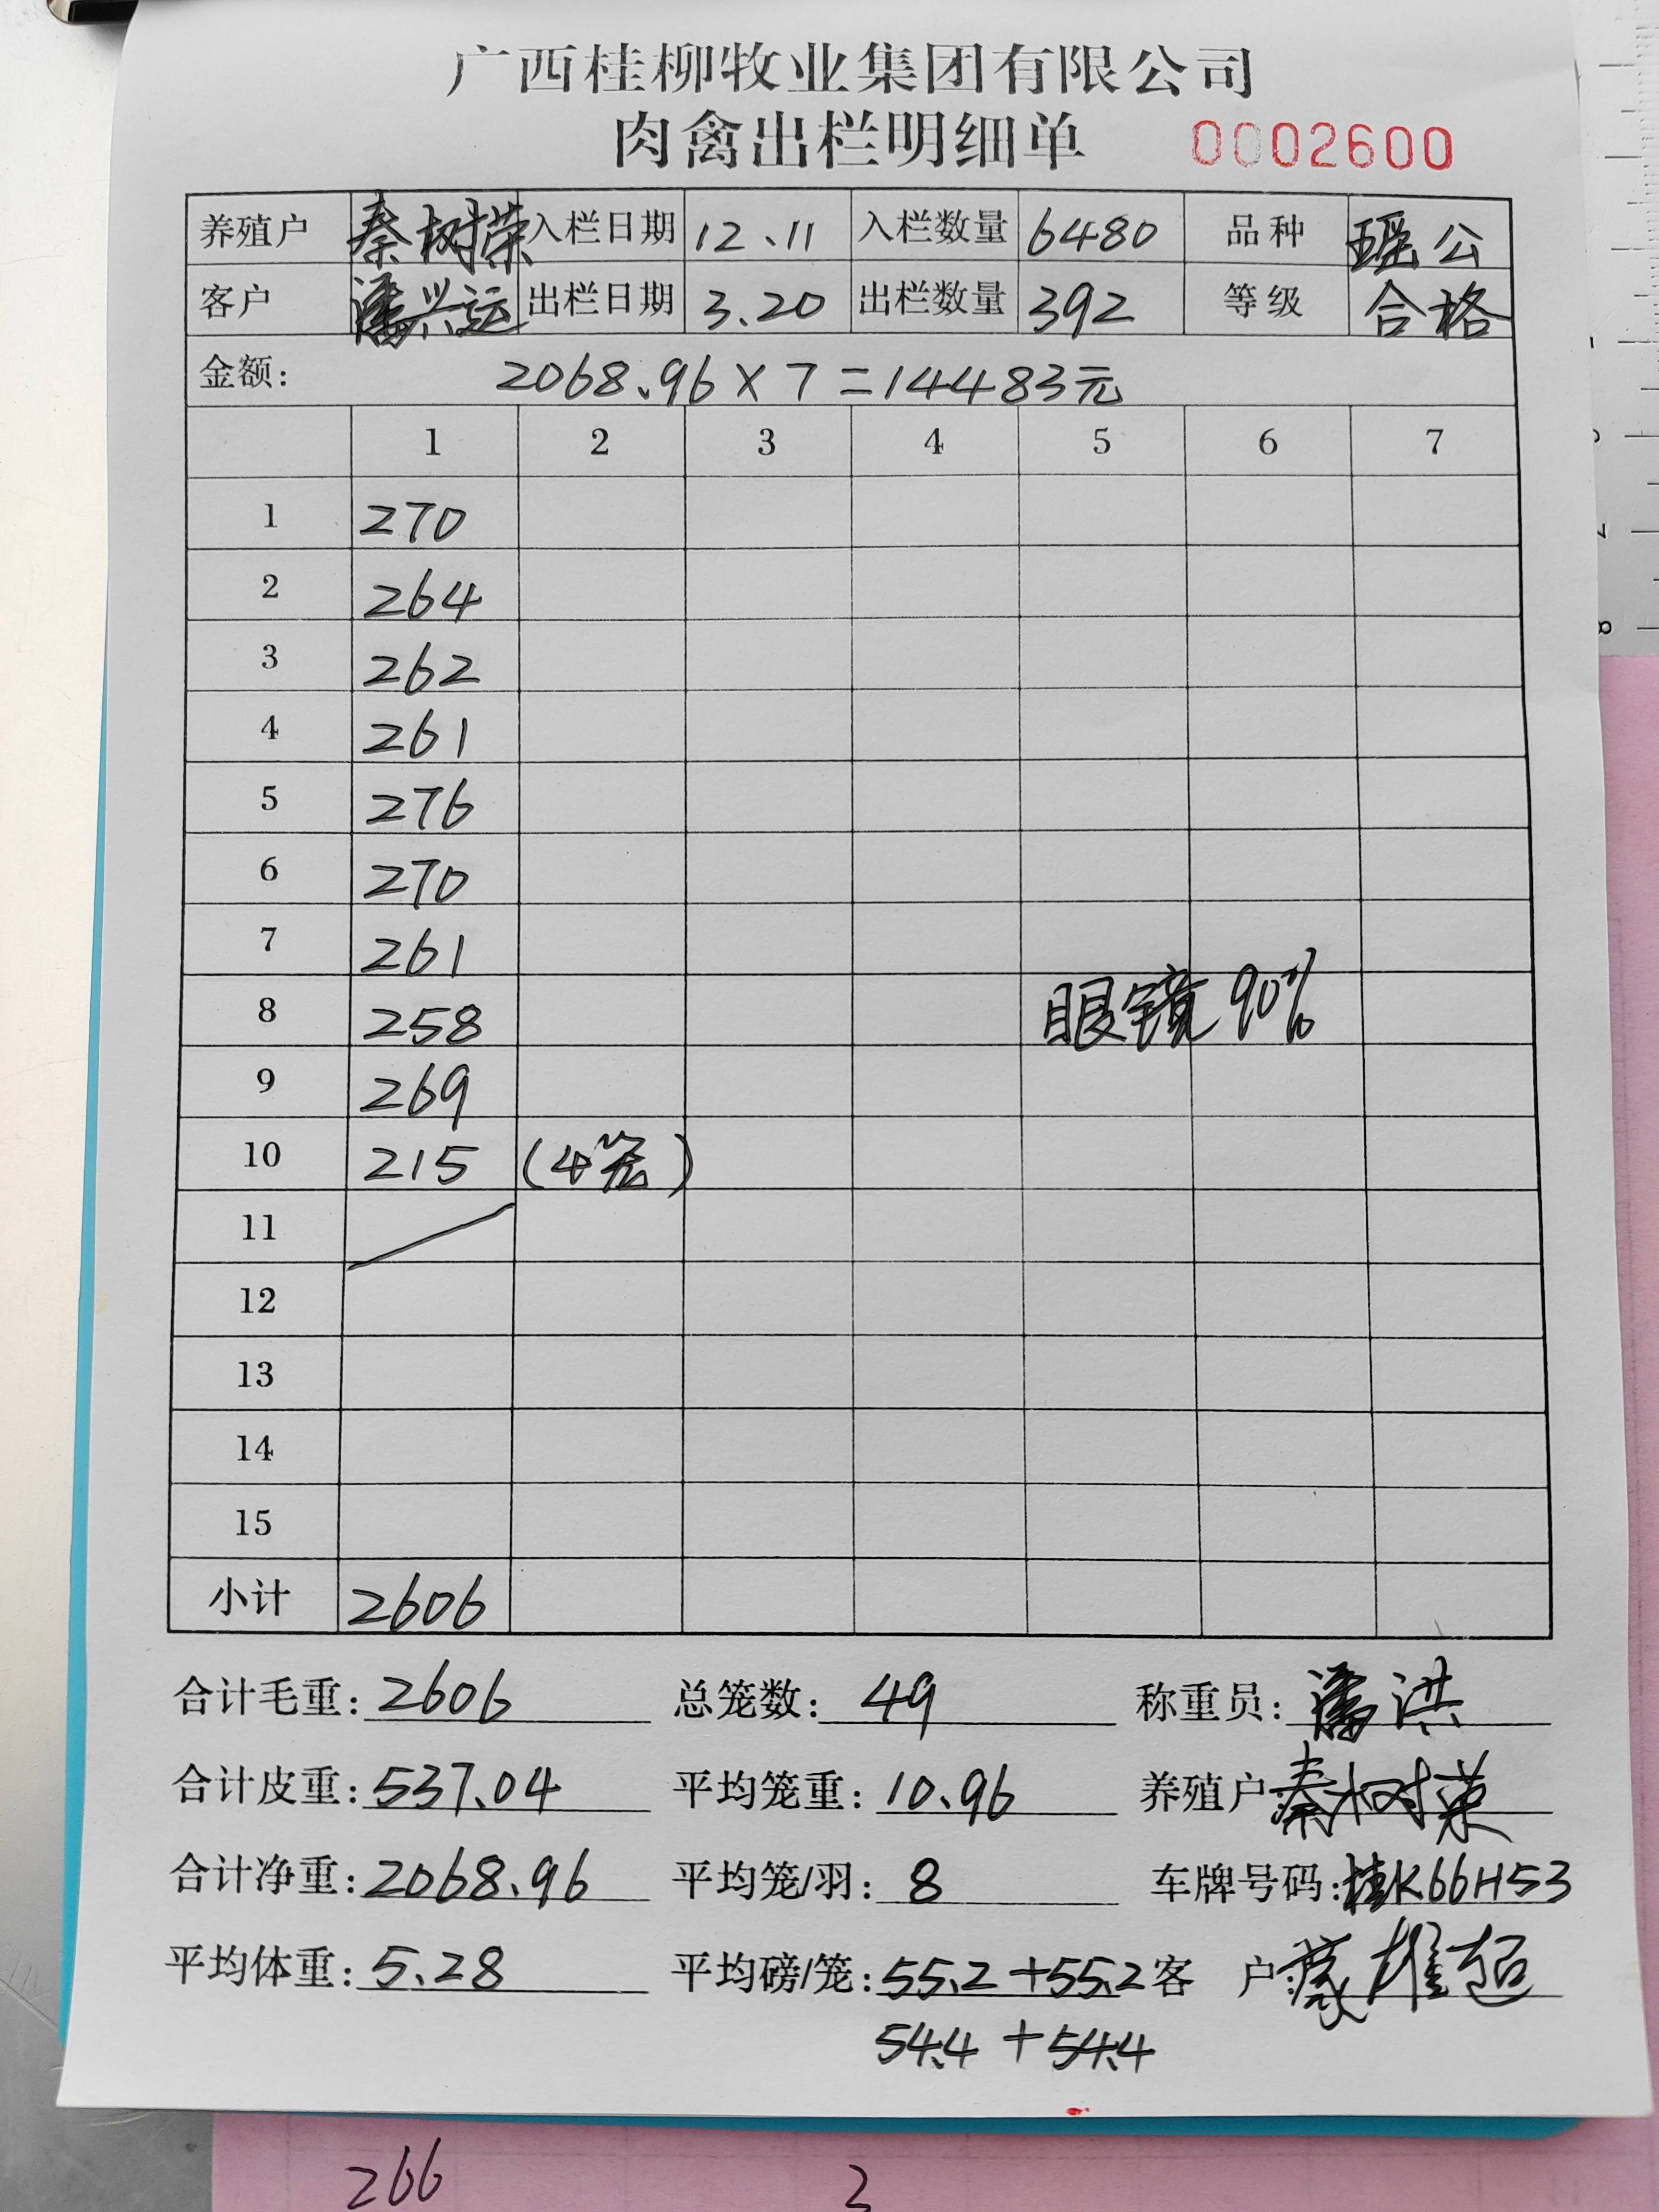 广西桂柳牧业集团有限公司
肉禽出栏明细单 0002600
养殖户 秦树荣 入栏日期 12.11 入栏数量 6480 品种 瑶公
客户 潘兴运 出栏日期 3.20 出栏数量 392 等级 合格
金额: 2068.96×7=14483元
1 2 3 4 5 6 7
1 270
2 264
3 262
4 261
5 276
6 270
7 261
8 258 眼镜90%
9 269
10 215 (4笼)
11
12
13
14
15
小计 2606
合计毛重: 2606 总笼数: 49 称重员: 潘洪
合计皮重: 537.04 平均笼重: 10.96 养殖户: 秦树荣
合计净重: 2068.96 平均笼/羽: 8 车牌号码: 桂K66H53
平均体重: 5.28 平均磅/笼: 55.2+55.2 客户: 雄超
54.4+54.4
266 2